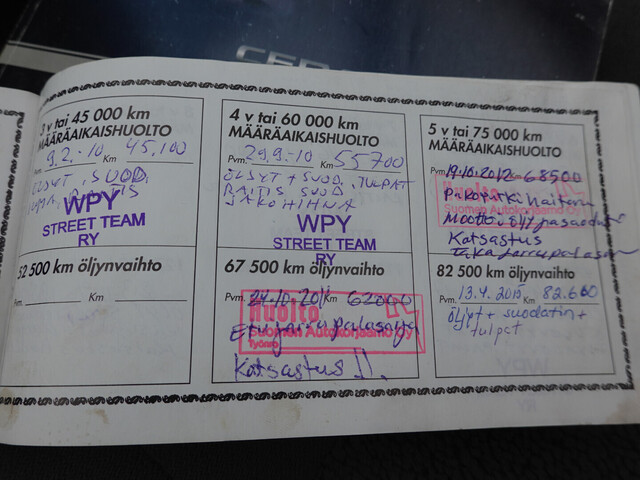 3 v tai 45 000 km
MÄÄRÄAIKAISHUOLTO
Pvm. 9.2.-10 Km 45,100
ÖLJYT, SUOD.
WPY
STREET TEAM
RY
52 500 km öljynvaihto
Pvm. Km
4 v tai 60 000 km
MÄÄRÄAIKAISHUOLTO
Pvm. 29.9.-10 Km 55700
ÖLJYT + SUOD, TULPAT
RAITIS SUOD
JAKOHIHNA
WPY
STREET TEAM
RY
67 500 km öljynvaihto
Pvm. Km 62000
Huolto
Suomen Autokorjaamo Oy
Työnro
Etujarrupalasarja
Katsastus !!.
5 v tai 75 000 km
MÄÄRÄAIKAISHUOLTO
Pvm. 19.10.2012 - 68500
Huolto
Suomen Autokorjaamo Oy
Pakoputki haitaru
Moottoriöljy ja suodatin
Katsastus
takajarrupalasarja
82 500 km öljynvaihto
Pvm. 13.4.2015 Km 82.600
öljyt + suodatin +
tulpat